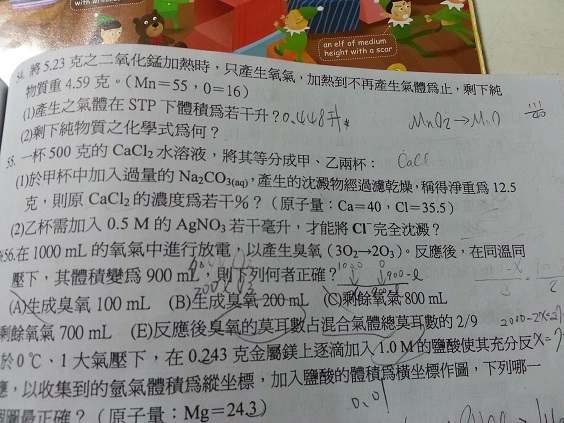 an elf of medium
height with a scar
54. 將 5.23 克之二氧化錳加熱時，只產生氧氣，加熱到不再產生氣體為止，剩下純
物質重 4.59 克。(Mn=55，O=16)
(1)產生之氣體在 STP 下體積為若干升？0.448升
(2)剩下純物質之化學式為何？
MnO2→Mn
55. 一杯 500 克的 CaCl2 水溶液，將其等分成甲、乙兩杯：
CaCl
(1)於甲杯中加入過量的 Na2CO3(aq)，產生的沈澱物經過濾乾燥，稱得淨重為 12.5
克，則原 CaCl2 的濃度為若干%？(原子量：Ca=40，Cl=35.5)
(2)乙杯需加入 0.5 M 的 AgNO3 若干毫升，才能將 Cl⁻完全沈澱？
56.在 1000 mL 的氧氣中進行放電，以產生臭氧(3O2→2O3)。反應後，在同溫同
壓下，其體積變為 900 mL，則下列何者正確？
(A)生成臭氧 100 mL (B)生成臭氧 200 mL (C)剩餘氧氣 800 mL
剩餘氧氣 700 mL (E)反應後臭氧的莫耳數占混合氣體總莫耳數的 2/9
於 0℃、1 大氣壓下，在 0.243 克金屬鎂上逐滴加入 1.0 M 的鹽酸使其充分反
應，以收集到的氫氣體積為縱坐標，加入鹽酸的體積為橫坐標作圖，下列哪一
個圖最正確？(原子量：Mg=24.3)
0.01